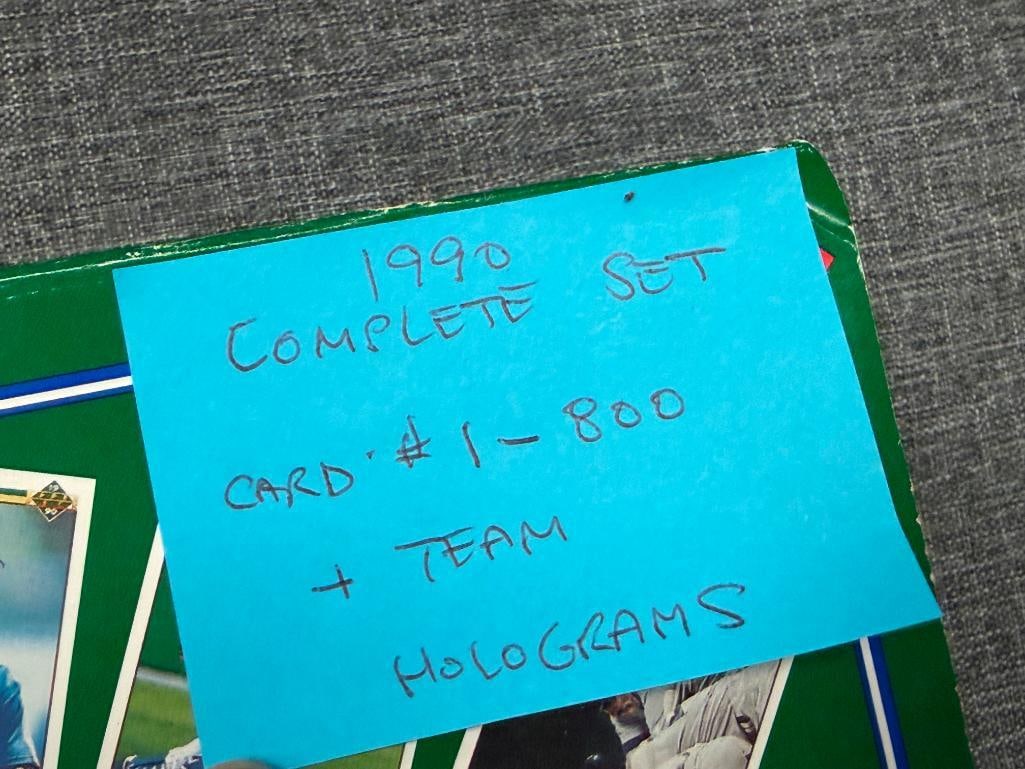 1990
COMPLETE SET
CARD # 1 - 800
+ TEAM
HOLOGRAMS
19
90